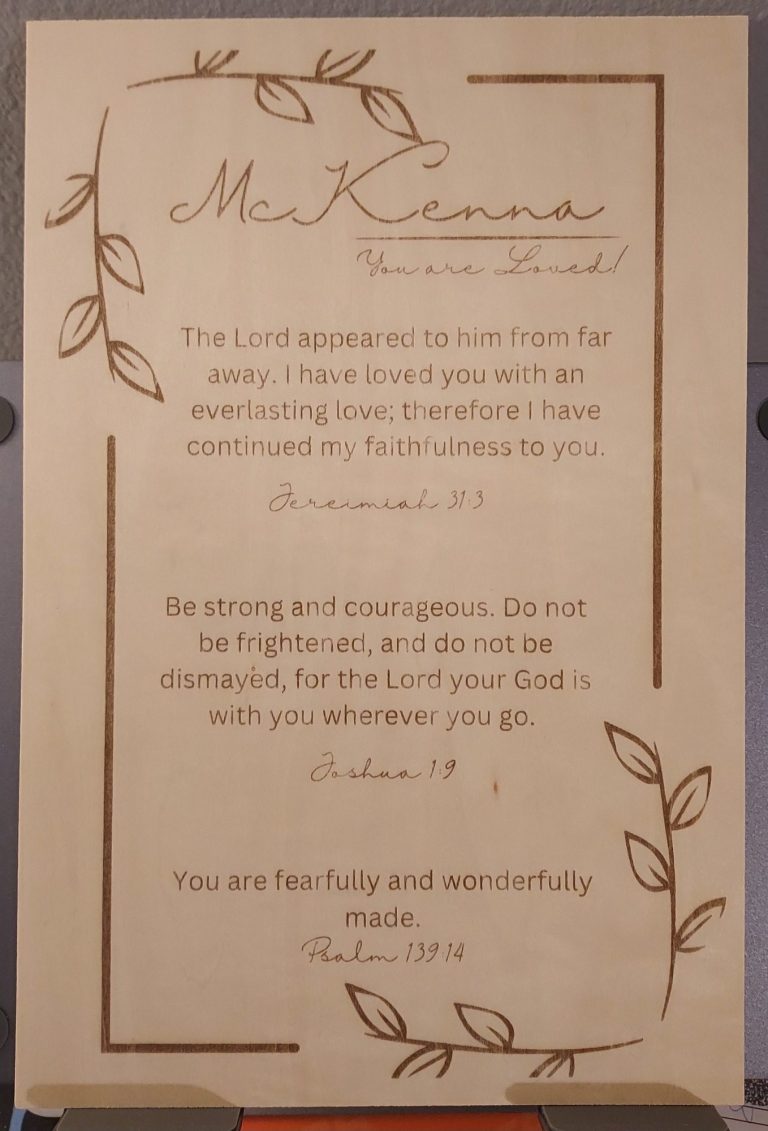 McKenna
You are Loved!
The Lord appeared to him from far
away. I have loved you with an
everlasting love; therefore I have
continued my faithfulness to you.
Jereimiah 31:3
Be strong and courageous. Do not
be frightened, and do not be
dismayed, for the Lord your God is
with you wherever you go.
Joshua 1:9
You are fearfully and wonderfully
made.
Psalm 139:14